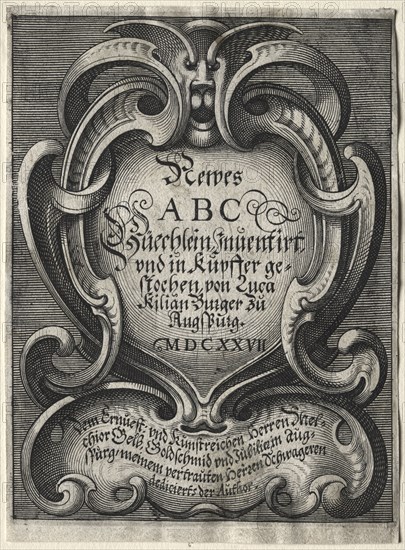 Newes
ABC
Büechlein Inuentirt
vnd in Kupffer ge-
stochen von Luca
Kilian Burger zu
Augspurg.
MDCXXVII
Dem Ernuest vnd Kunstreichen Herren Mel-
chior Gelb Goldschmid vnd Jubilier in Aug-
spurg meinem vertrauten Herzen Schwageren
dediciert der Author